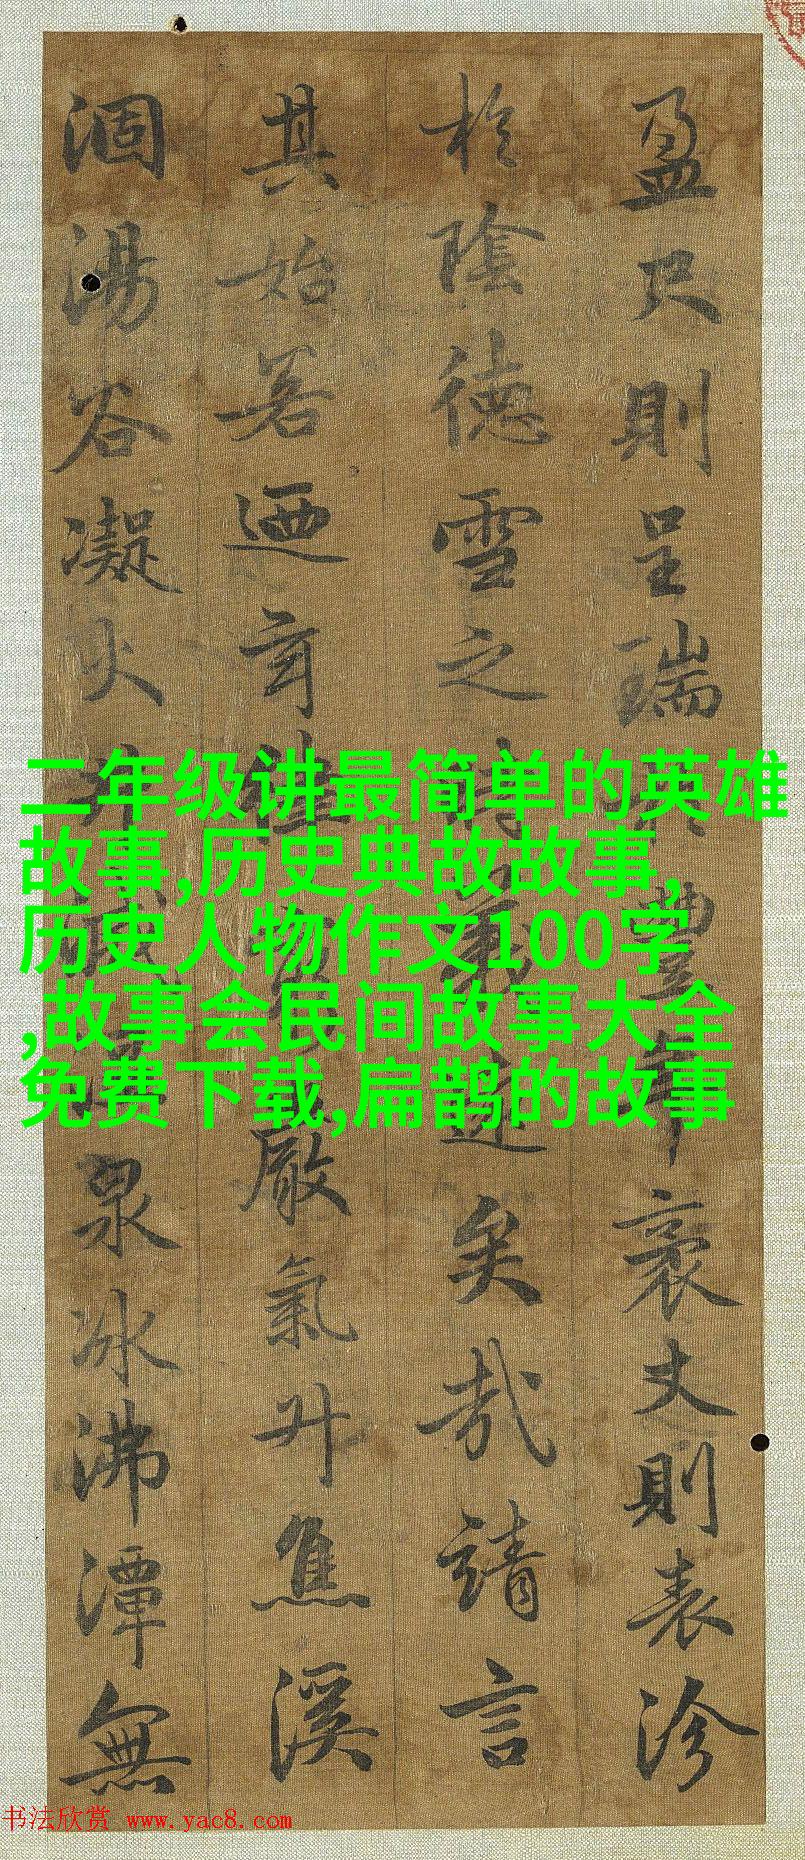 盈尺則呈瑞豐年袤丈則表沴
於陰德雪之時義遠矣哉請言
其始若迺玄律嚴氣升焦溪
涸湯谷凝火井泉冰沸潭無
二年级讲最简单的英雄
故事,历史典故故事,
历史人物作文100字
,故事会民间故事大全
免费下载,扁鹊的故事
书法欣赏 www.yac8.com